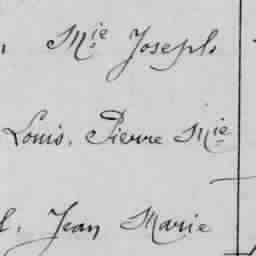 Mie Joseph
Louis, Pierre Mie
Jean Marie